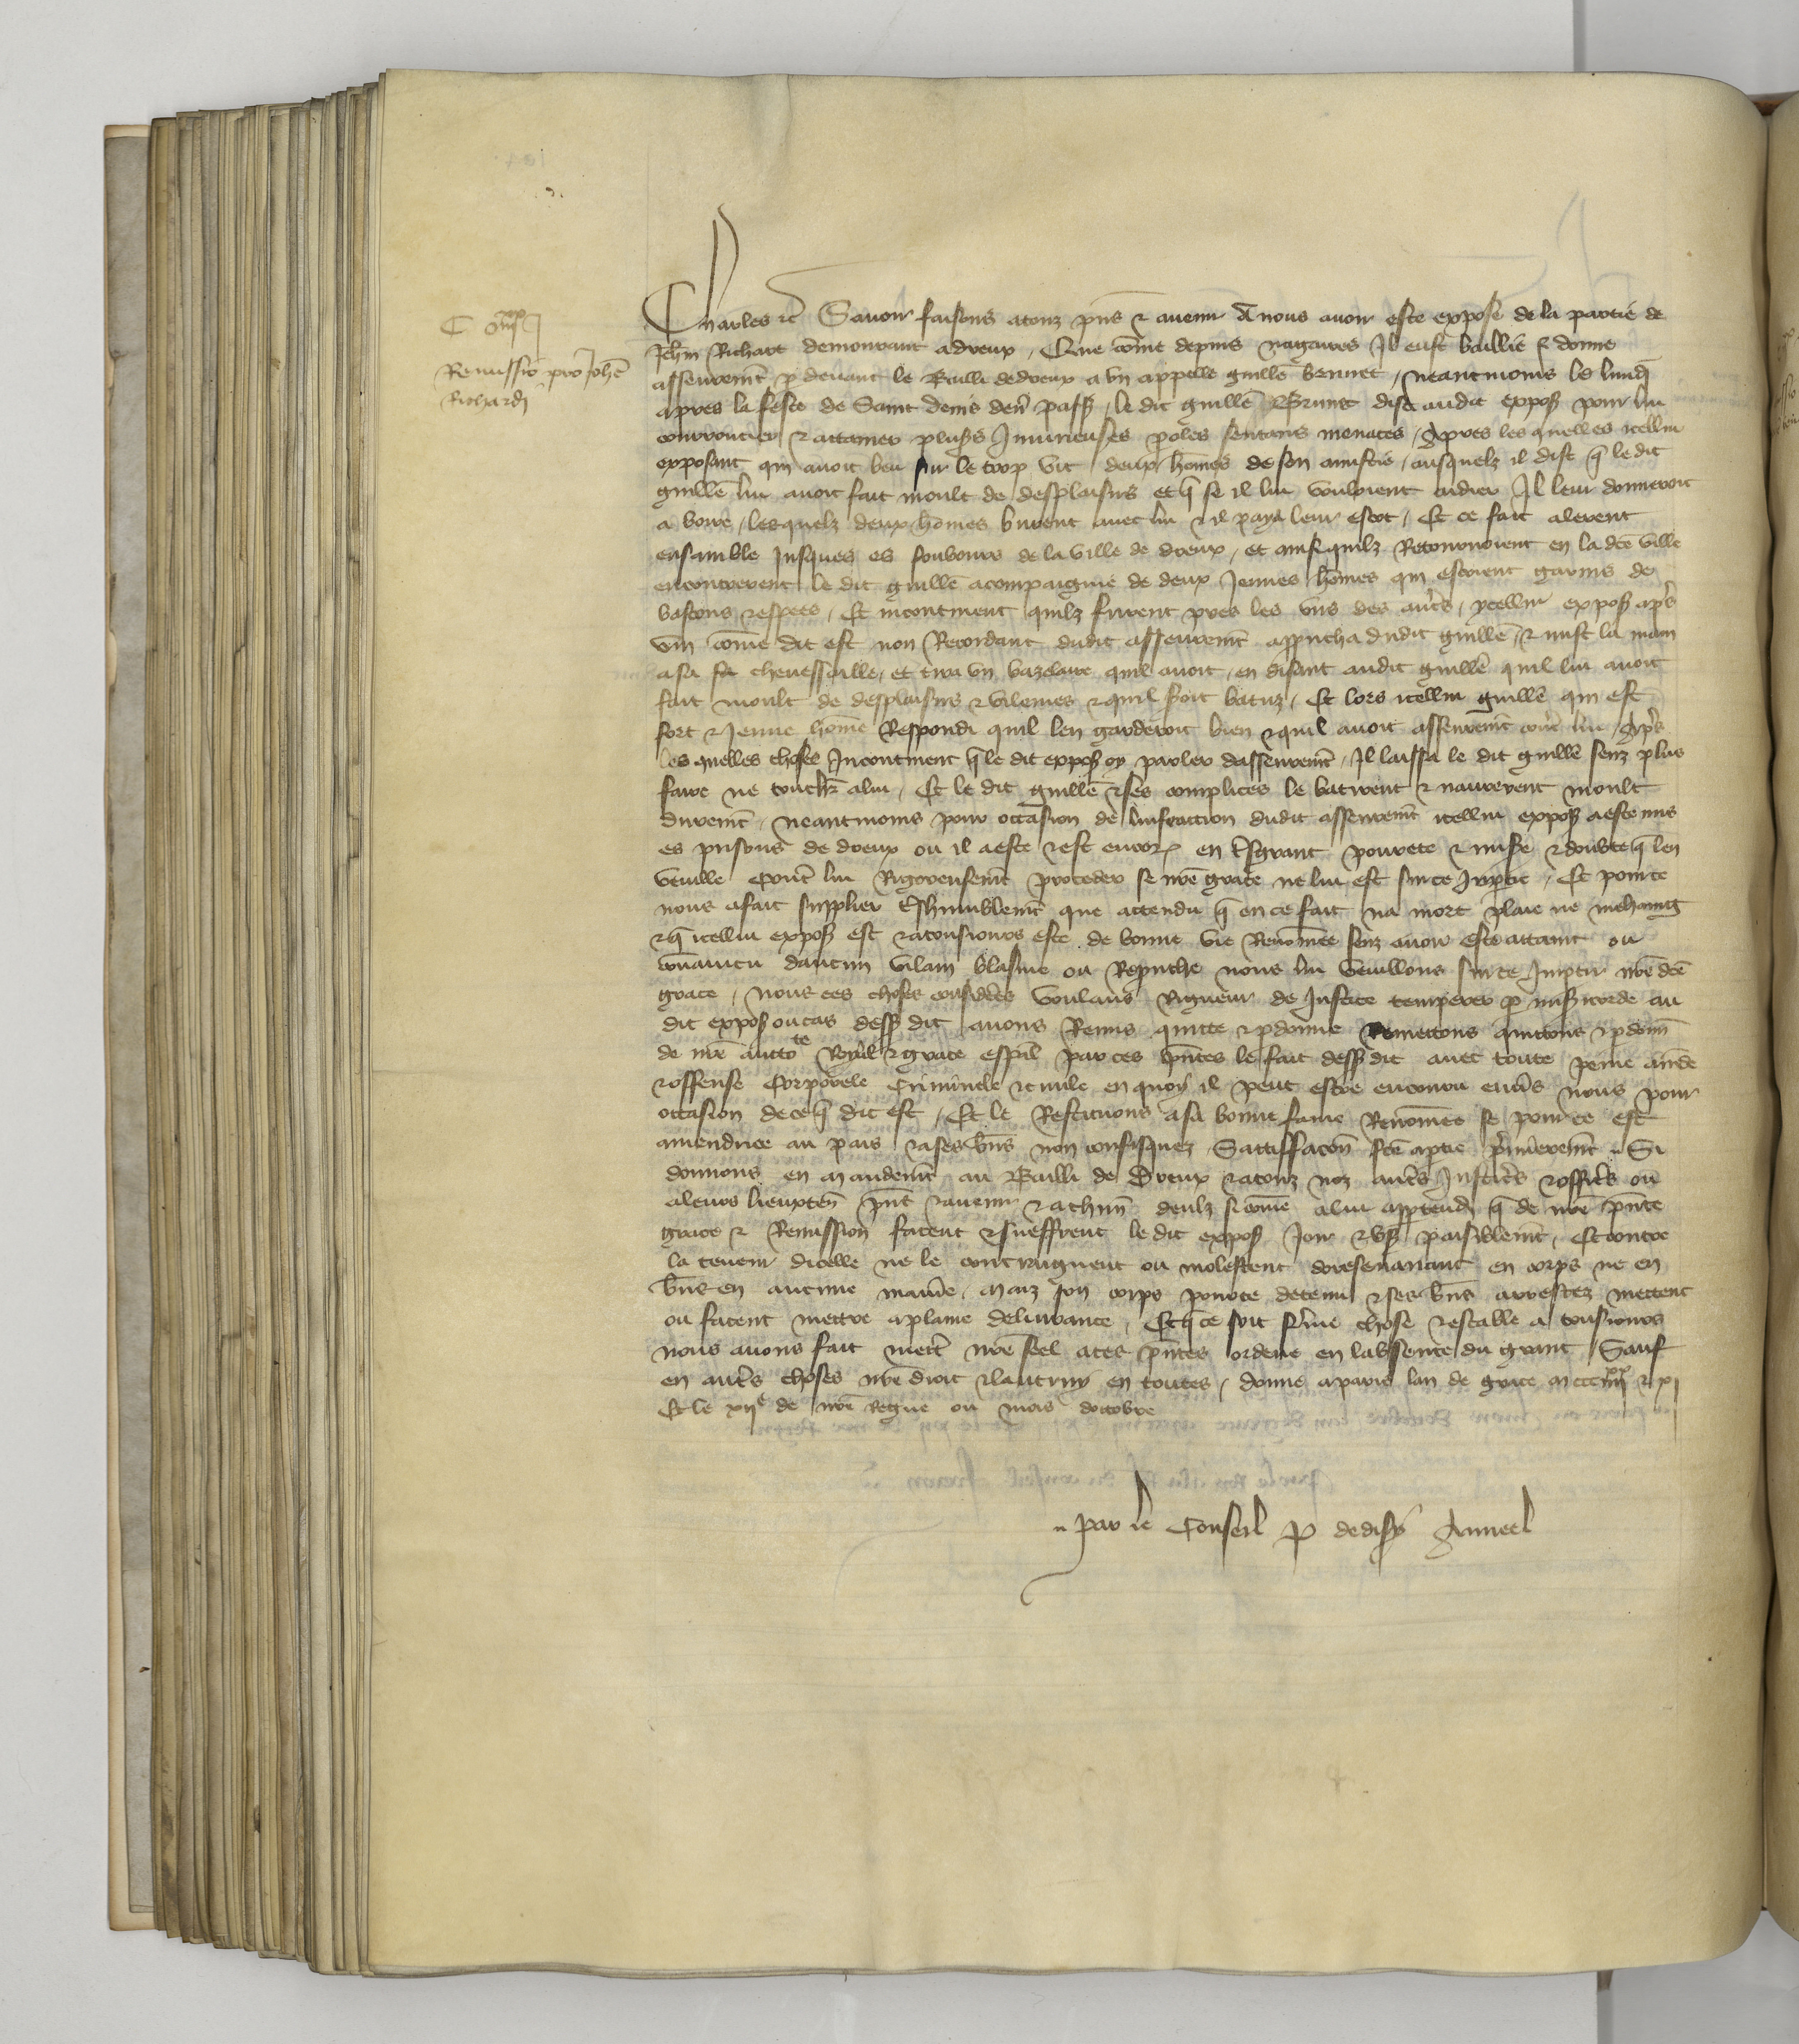 Remissio pro Johe
Richardi
Charles &c Savoir faisons a touz pns & avenir A nous avoir este expose de la partie de
Jehn Richart demourant a dreux, Que come depuis nagaires Il eust baillie & donne
asseuremt p devant le Bailli de dreux a un appelle guille brunet, neantmoins le lundi
apres la feste de Saint denis den passe, le dit guille Brunet dist audit exposs pour lui
courroucier & attainer plusrs Injurieuses poles sentans menaces, Apres les quelles icellui
exposant qui avoit beu sur le trop vit deux homes de son amistie, ausquelz il dist q le dit
guille lui avoit fait moult de desplaisirs et q se il lui vouloient aidier Il leur donneroit
a boire, lesquelz deux homes burent avec lui & il paya leur escot, Et ce fait alerent
ensamble jusques es fourbours de la ville de dreux, et ainsi quilz Retournoient en la dce ville
encontrerent le dit guille acompaignie de deux Jeunes homes qui estoient garnis de
bastons & espees, Et incontinent quilz furent pres les uns des autrs, ycellui exposs aps
vin come dit est non Recordant dudit asseuremt approucha dudit guille, & mist la main
a sa chevessaille, et tira un bazelaire quil avoit, en disant audit guille quil lui avoit
fait moult de desplaisirs & vilenies & quil soit batuz, Et lors icellui guille qui est
fort & jeune home Respondi quil len garderoit bien & quil avoit asseuremt contre lui, Aps
les quelles choses Incontinent q le dit exposs oy parler dasseuremt, Il laissa le dit guille senz plus
faire ne touchr a lui, Et le dit guille & ses complices le batirent & navrerent moult
durement, neantmoins pour occasion de linfraction dudit asseuremt icellui exposs a este mis
es prisons de dreux ou il a este & est encores en tsgrant povrete & mise & doubte q len
veuille contre lui Rigoreusemt proceder se nre grace ne lui est sur ce Impartie, Et pour ce
nous a fait supplier tshumblemt que attendu q en ce fait na mort plaie ne mehaing
& q icellui exposs est & a tousiours este de bonne vie Renomee senz avoir este attaint ou
convaincu daucun vilain blasme ou Reprouche nous lui veuillons sur ce Impartir nre dce
grace, Nous ces choses considerees voulans Rigueur de Justice temperer p misicorde au
dit exposs ou cas dessus dit avons Remis quitte & pdonne Remettons quittons & pdonn
de nre auctote Royal & grace espal par ces pntes le fait dessus dit avec toute peine amde
& offense Corporele Criminele & civile en quoy il peut estre encouru envs nous pour
occasion de ce q dit est, Et le Restituons a sa bonne fame Renomee se pour ce est
amendrie au pais & a ses bns non confisquez Satiffacon fce a ptie premieremt Si
donnons en mandemt au Bailli de Dreux & a touz noz autrs Justicrs & officrs ou
a leurs lieuxten pns & avenir & a chun deulz si come a lui appartendra q de nre pnte
grace & Remission facent & sueffrent le dit exposs Joir & user paisiblemt, Et contre
la teneur dicelle ne le contraignent ou molestent doresenavant en corps ne en
biens en aucune maniere, maiz son corps pour ce detenu & ses bns arrestez mettent
ou facent mettre a plaine delivrance, Et q ce soit ferme chose & estable a tousiours
nous avons fait mettre nre seel a ces pntes ordene en labsence du grant Sauf
en autrs choses nre droit & lautruy en toutes, donne a paris lan de grace m ccc iiii xx & xi
Et le xiie de nre Regne ou mois doctobre
par le Conseil